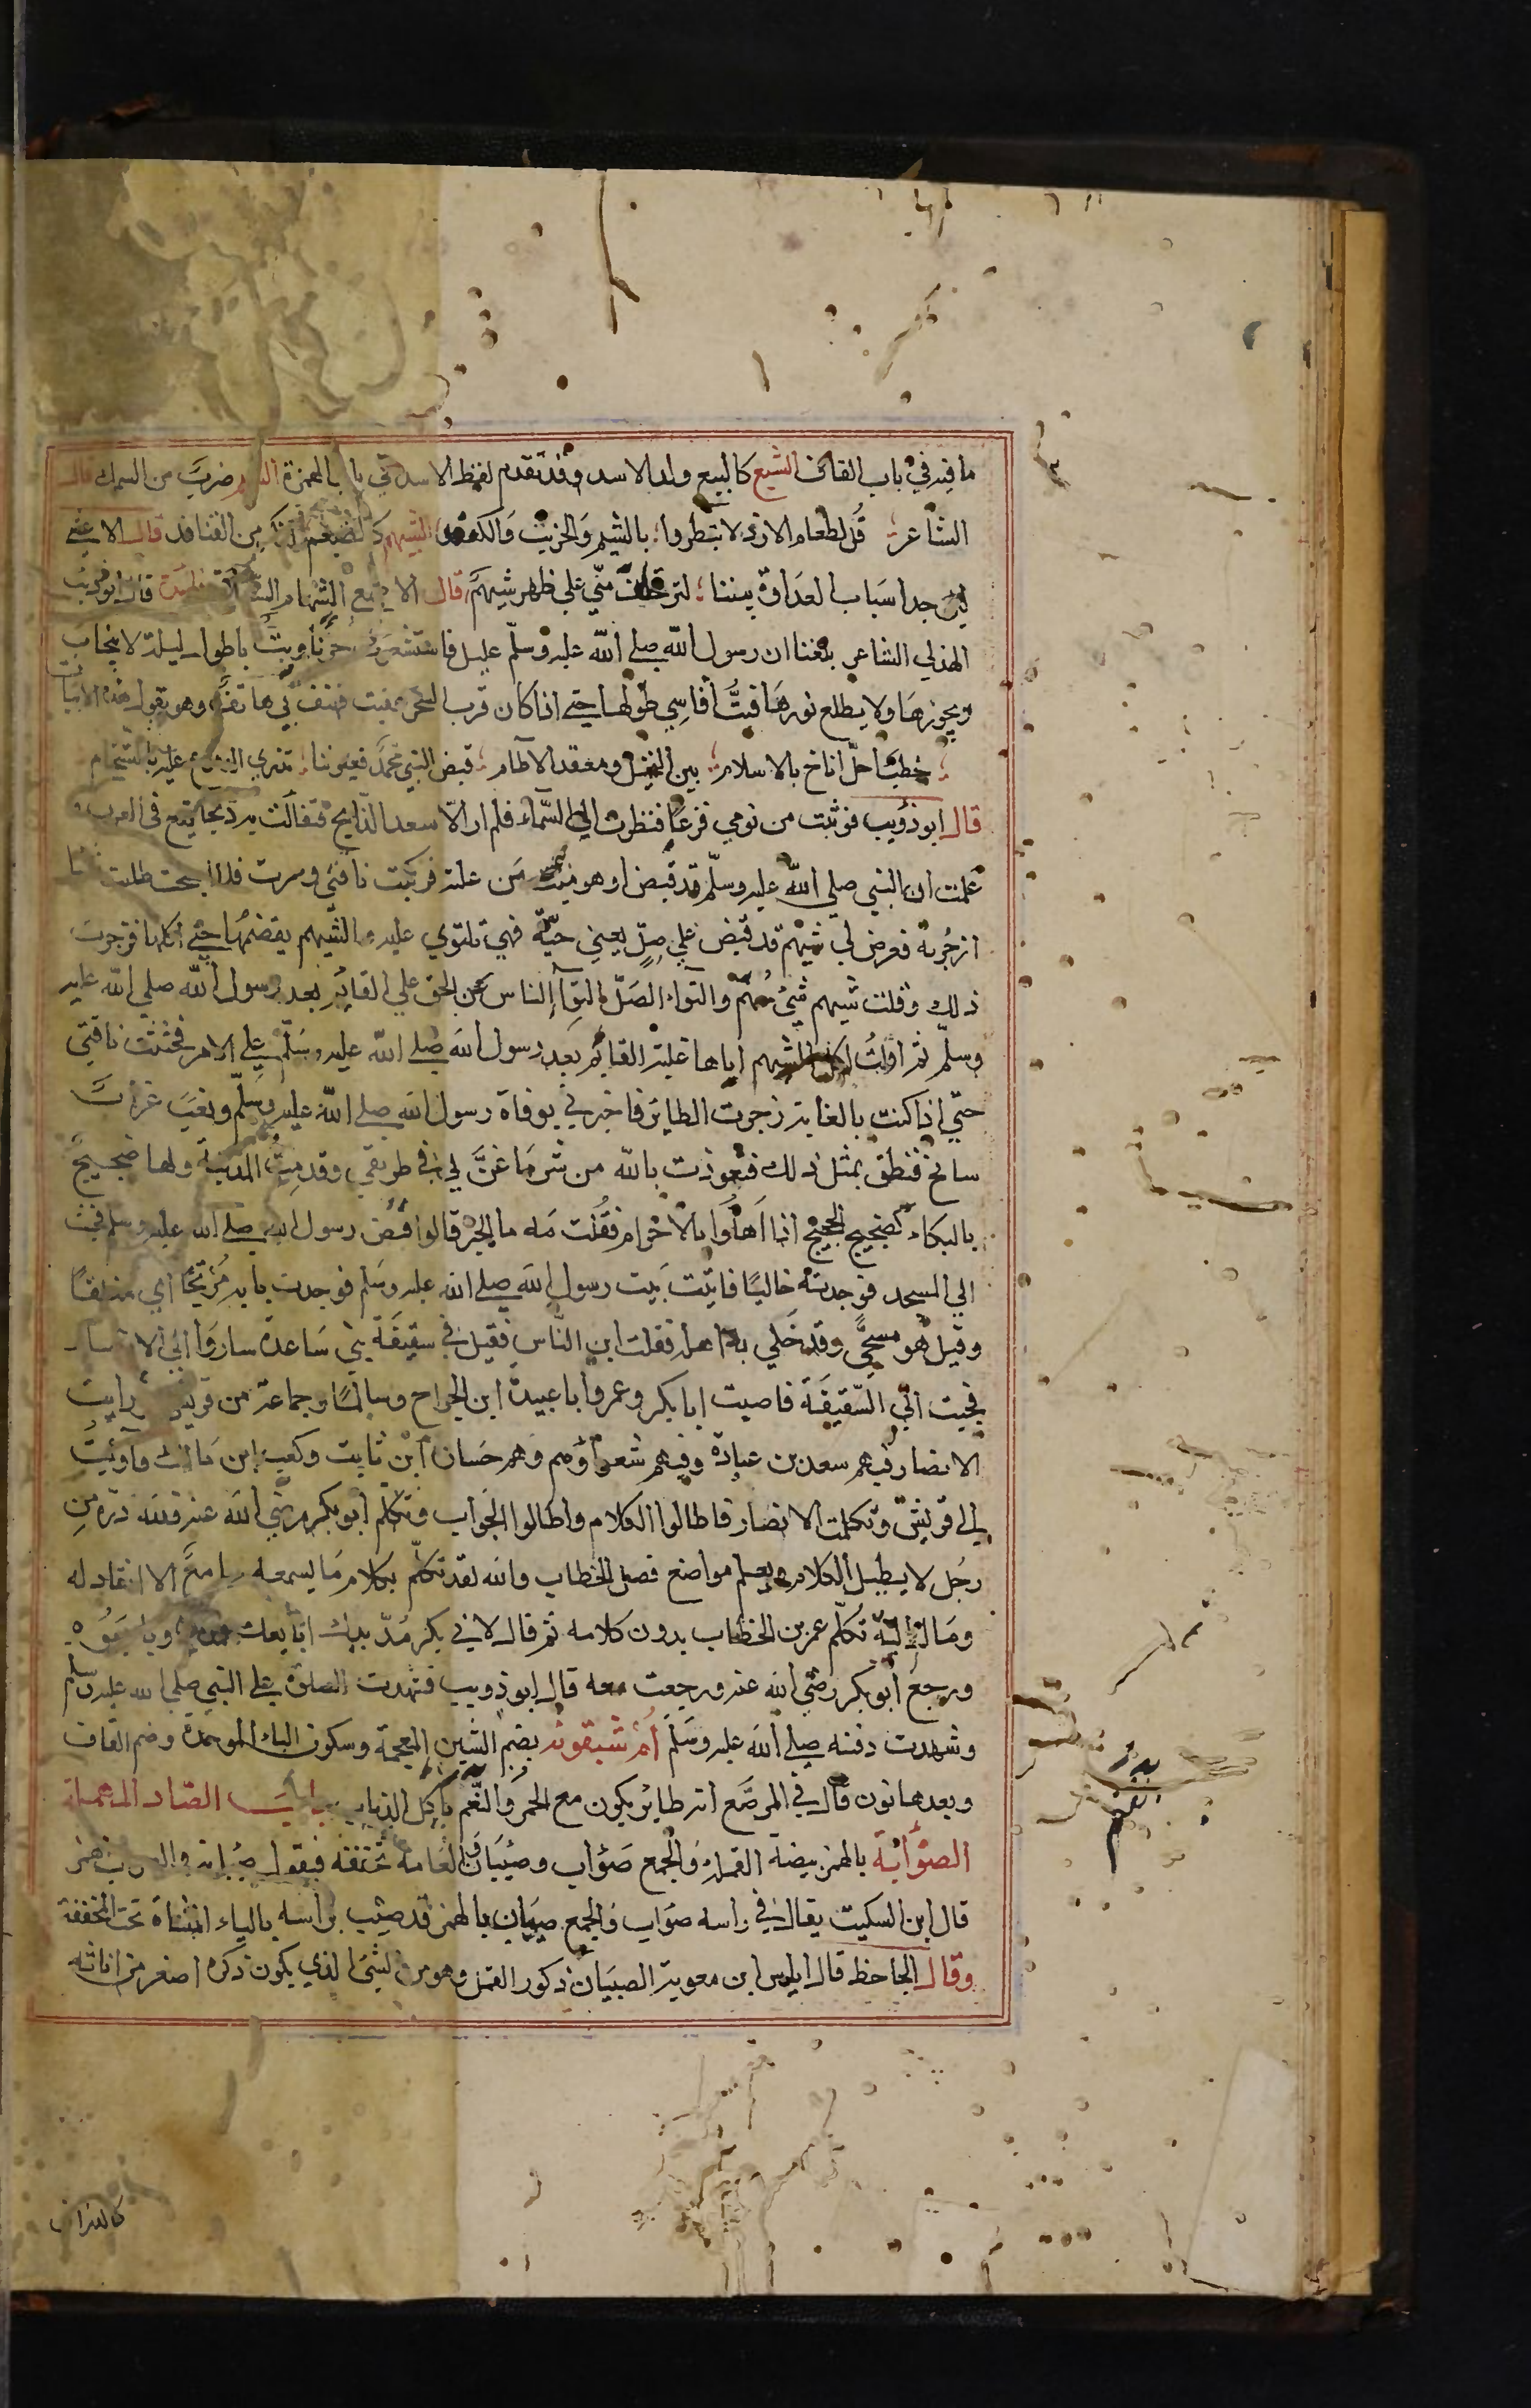 ما فيه في باب القاف الشيع كالبيع ولد الاسد وقد تقدم لفظ الاسد في باب الهمزة الشيم ضرب من السمك قال
الشاعر قل لطعام الازد لا تبطروا بالشيم والخريث والكنعد الشيهم كالضيغم ذكر من القنافد قال الاعشي
لين جد اسباب العداوة بيننا لترتحلن مني علي ظهر شيهم قال الاصمع الشهام السعلاة قال ابو ذويب
الهذلي الشاعر بلغنا ان رسول الله صلي الله عليه وسلم عليل فاستشعرت حزنا وبت باطول ليلة لا ينجاب
ديجورها ولا يطلع نورها فبت اقاسي طولها حتي اذا كان قرب السحر غفيت فهتف بي هاتف وهو يقول هذه الابيات
خطب اجل اناخ بالاسلام بين النخيل ومعقد الاطام قبض النبي محمد فعيوننا تذري الدموع عليه بالتسجام
قال ابو ذؤيب فوثبت من نومي فزعا فنظرت الي السماء فلم ار الا سعد الذابح فتفالت به ذبحا يقع في العرب و
علمت ان النبي صلي الله عليه وسلم قد قبض او هو ميت من علته فركبت ناقتي وسرت فلما اصبحت طلبت شيا
ازجر به فعرض لي شيهم قد قبض علي صل يعني حية فهي تلتوي عليه والشيهم يقضمها حتي اكلها فزجرت
ذلك وقلت شيهم شئ مهم والتواء الصل التواء الناس عن الحق علي القايم بعد رسول الله صلي الله عليه
وسلم ثم اولت اكل الشيهم اياها غلبة القايم بعد رسول الله صلي الله عليه وسلم علي الامر فحثثت ناقتي
حتي اذا كنت بالغابة زجرت الطاير فاخبرني بوفاة رسول الله صلي الله عليه وسلم ونعب غراب
سانح فنطق بمثل ذلك فتعوذت بالله من شر ما عن لي في طريقي وقدمت المدينة ولها ضجيج
بالبكاء كضجيج الحجيج اذا اهلوا بالاحرام فقلت مه ما الخبر قالوا قبض رسول الله صلي الله عليه وسلم فجئت
الي المسجد فوجدته خاليا فاتيت بيت رسول الله صلي الله عليه وسلم فوجدت بابه مرتجا اي مغلقا
وقيل هو مسجي وقد خلي به اهله فقلت اين الناس فقيل في سقيفة بني ساعدة ساروا الي الانصار
فجيت الي السقيفة فاصبت ابا بكر وعمر وابا عبيدة ابن الجراح وسالما وجماعة من قريش ورايت
الانصار فيهم سعد بن عبادة وفيهم شعراؤهم وهم حسان ابن ثابت وكعب ابن مالك فآويت
الي قريش وتكلمت الانصار فاطالوا الكلام واطالوا الجواب وتكلم ابو بكر رضي الله عنه فلله دره من
رجل لا يطيل الكلام ويعلم مواضع فصل الخطاب والله لقد تكلم بكلام ما يسمعه سامع الا انقاد له
ومال اليه تكلم عمر بن الخطاب بدون كلامه ثم قال لابي بكر مد يدك ابايعك فمد وبايعوه
ورجع ابو بكر رضي الله عنه ورجعت معه قال ابو ذويب فشهدت الصلاة علي النبي صلي الله عليه وسلم
وشهدت دفنه صلي الله عليه وسلم ام شبقونه بضم الشين المعجمة وسكون الباء الموحدة وضم القاف
وبعدها نون قال في المرصع انه طاير يكون مع الحمر والنعم ياكل الذباب باب الصاد المهملة
الصؤابة بالهمز بيضة القملة والجمع صؤاب وصئبان والعامة تخففه فيقول صيبان والصواب همز
قال ابن السكيت يقال في راسه صواب والجمع صيبان بالهمز قد صيب راسه بالياء المثناة تحت المخففة
وقال الجاحظ قال اياس ابن معوية الصيبان ذكور القمل وهو من الشئ الذي يكون ذكره اصغر من اناثه
كالبزاة